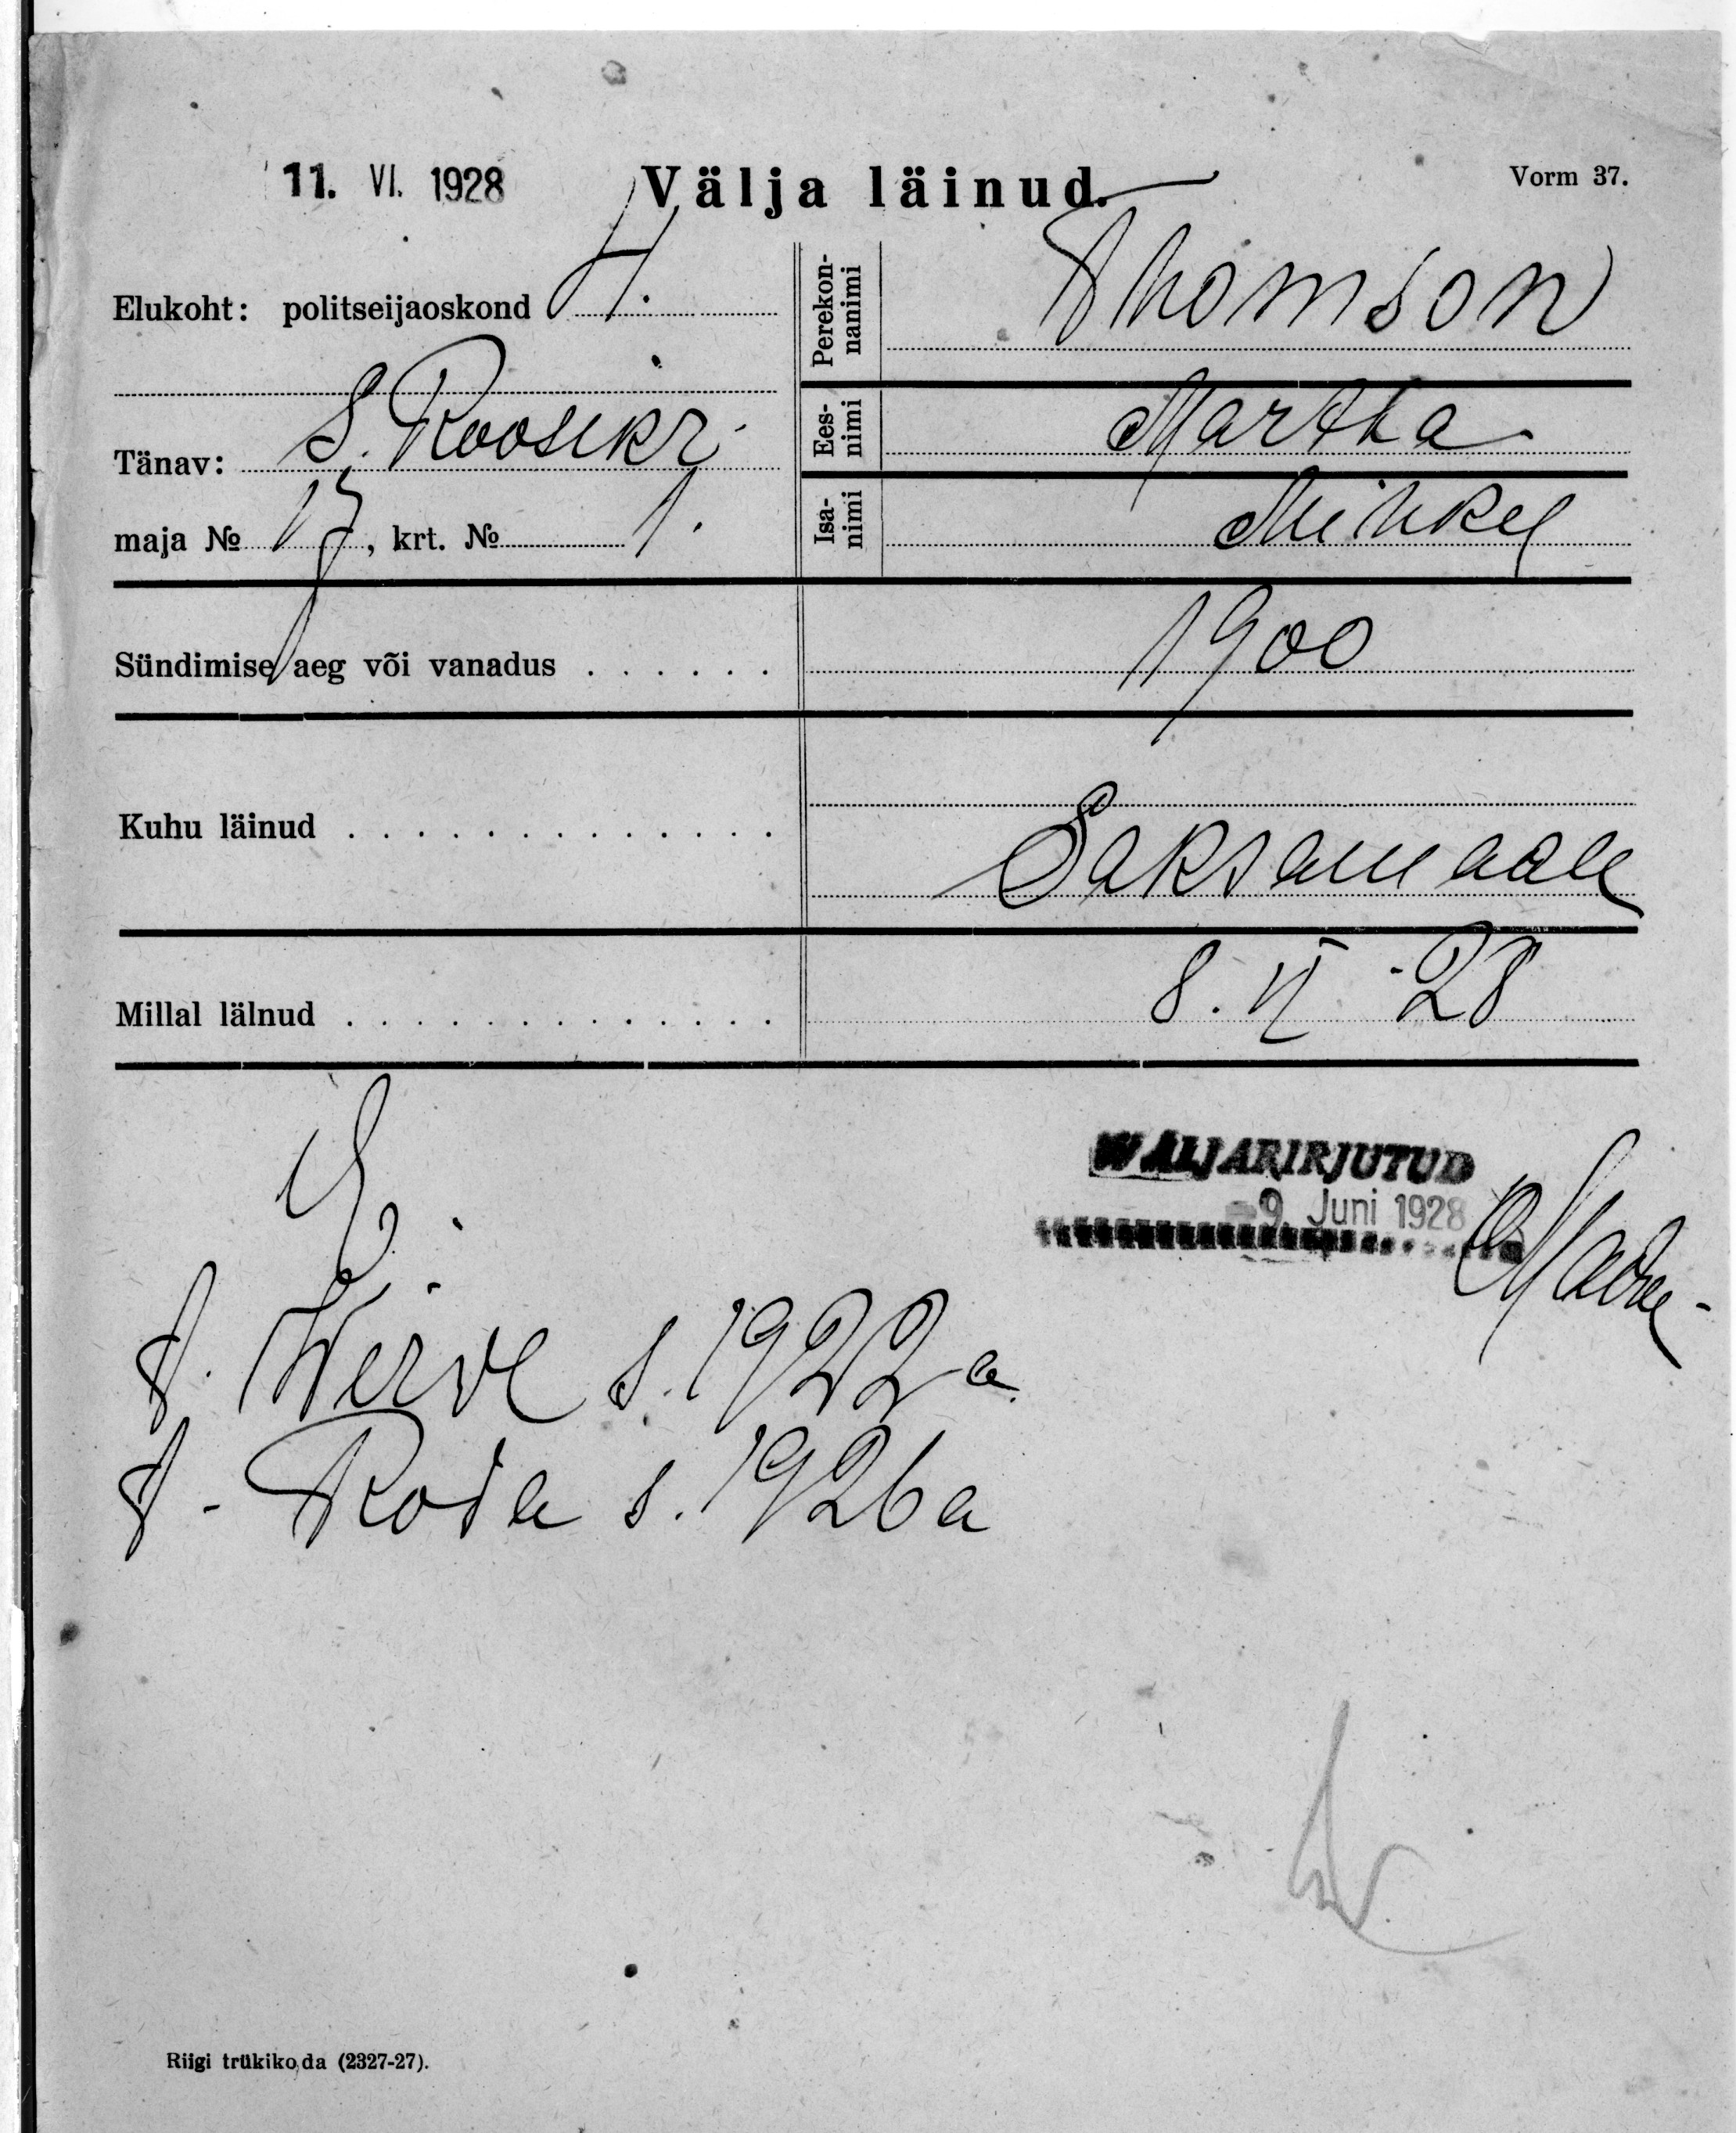 11. VI. 1928
Välja läinud.
Vorm 37.
Elukoht: politseijaoskond 4.
Tänav: S. Roosikr.
maja № 17, krt. № 1.
Perekon-
nanimi
Thomson
Ees-
nimi
Martha
Isa-
nimi
Mihkel
Sündimise aeg või vanadus . . . . . . 1900
Kuhu läinud . . . . . . . . . . . . . Saksamaale
Millal lälnud . . . . . . . . . . . . . 8. VI -28
WÄLJAKIRJUTUD
-9. Juni 1928
t. Werve s. 1922 a.
t. - s. 1926 a
Riigi trükikoda (2327-27).